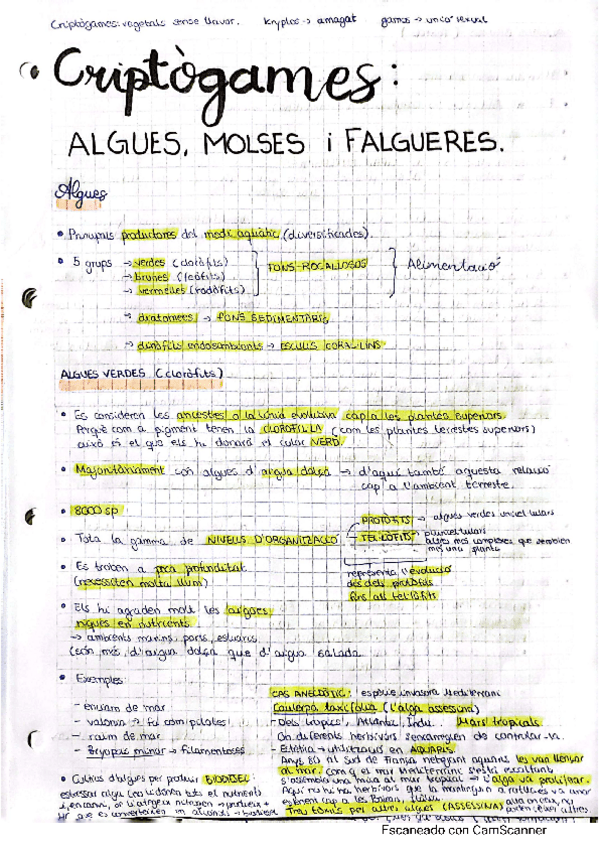 Criptògames: vegetals sense llavor. kryptos → amagat gamos → unió sexual
Criptògames:
ALGUES, MOLSES i FALGUERES.
Algues
• Principals productores del medi aquàtic (diversificades).
• 5 grups → verdes (cloròfits)
→ brunes (feòfits)
→ vermelles (rodòfits)
FONS ROCALLOSOS
Alimentació
→ diatomees → FONS SEDIMENTARIS
→ dinòfits endosimbionts → ESCULLS CORAL·LINS
ALGUES VERDES (cloròfits)
• Es consideren les ancestres o la línia evolutiva cap a les plantes superiors.
Perquè com a pigment tenen la CLOROFIL·LA (com les plantes terrestres superiors)
això és el que els hi donarà el color VERD.
• Majoritàriament són algues d'aigua dolça → d'aquí també aquesta relació
cap a l'ambient terrestre.
• 8000 sp
• Tota la gamma de NIVELLS D'ORGANITZACIÓ
PROTÒFITS → algues verdes unicel·lulars
TAL·LÒFITS → pluricel·lulars
algues més complexes que semblen
més una planta
representa l'evolució
des dels protòfits
fins als tal·lòfits
• Es troben a poca profunditat
(necessiten molta llum)
• Els hi agraden molt les aigües
riques en nutrients
→ ambients marins, ports, estuaris
(són més d'aigua dolça que d'aigua salada
• Exemples:
- enciam de mar
- valonia → fa com pilotes
- raïm de mar
- Bryopsis minor → filamentoses
• Cultius d'algues per produir BIODIESEL:
CAS ANECDÒTIC: espècie invasora Mediterrani
Caulerpa taxifolia (l'alga assesina)
- Dels tròpics, Atlàntic, Índic. Mars tropicals
On diferents herbívors s'encarreguen de controlar-la.
- Estètica → utilitzacions en AQUARIS.
Anys 80 al Sud de França netejant aquaris les van llençar
al mar. Com que el mar Mediterrani s'està escalfant
s'assembla una mica al mar tropical → l'alga va proliferar.
Aquí no hi ha herbívors que la mantinguin a ratlla
Escaneado con CamScanner